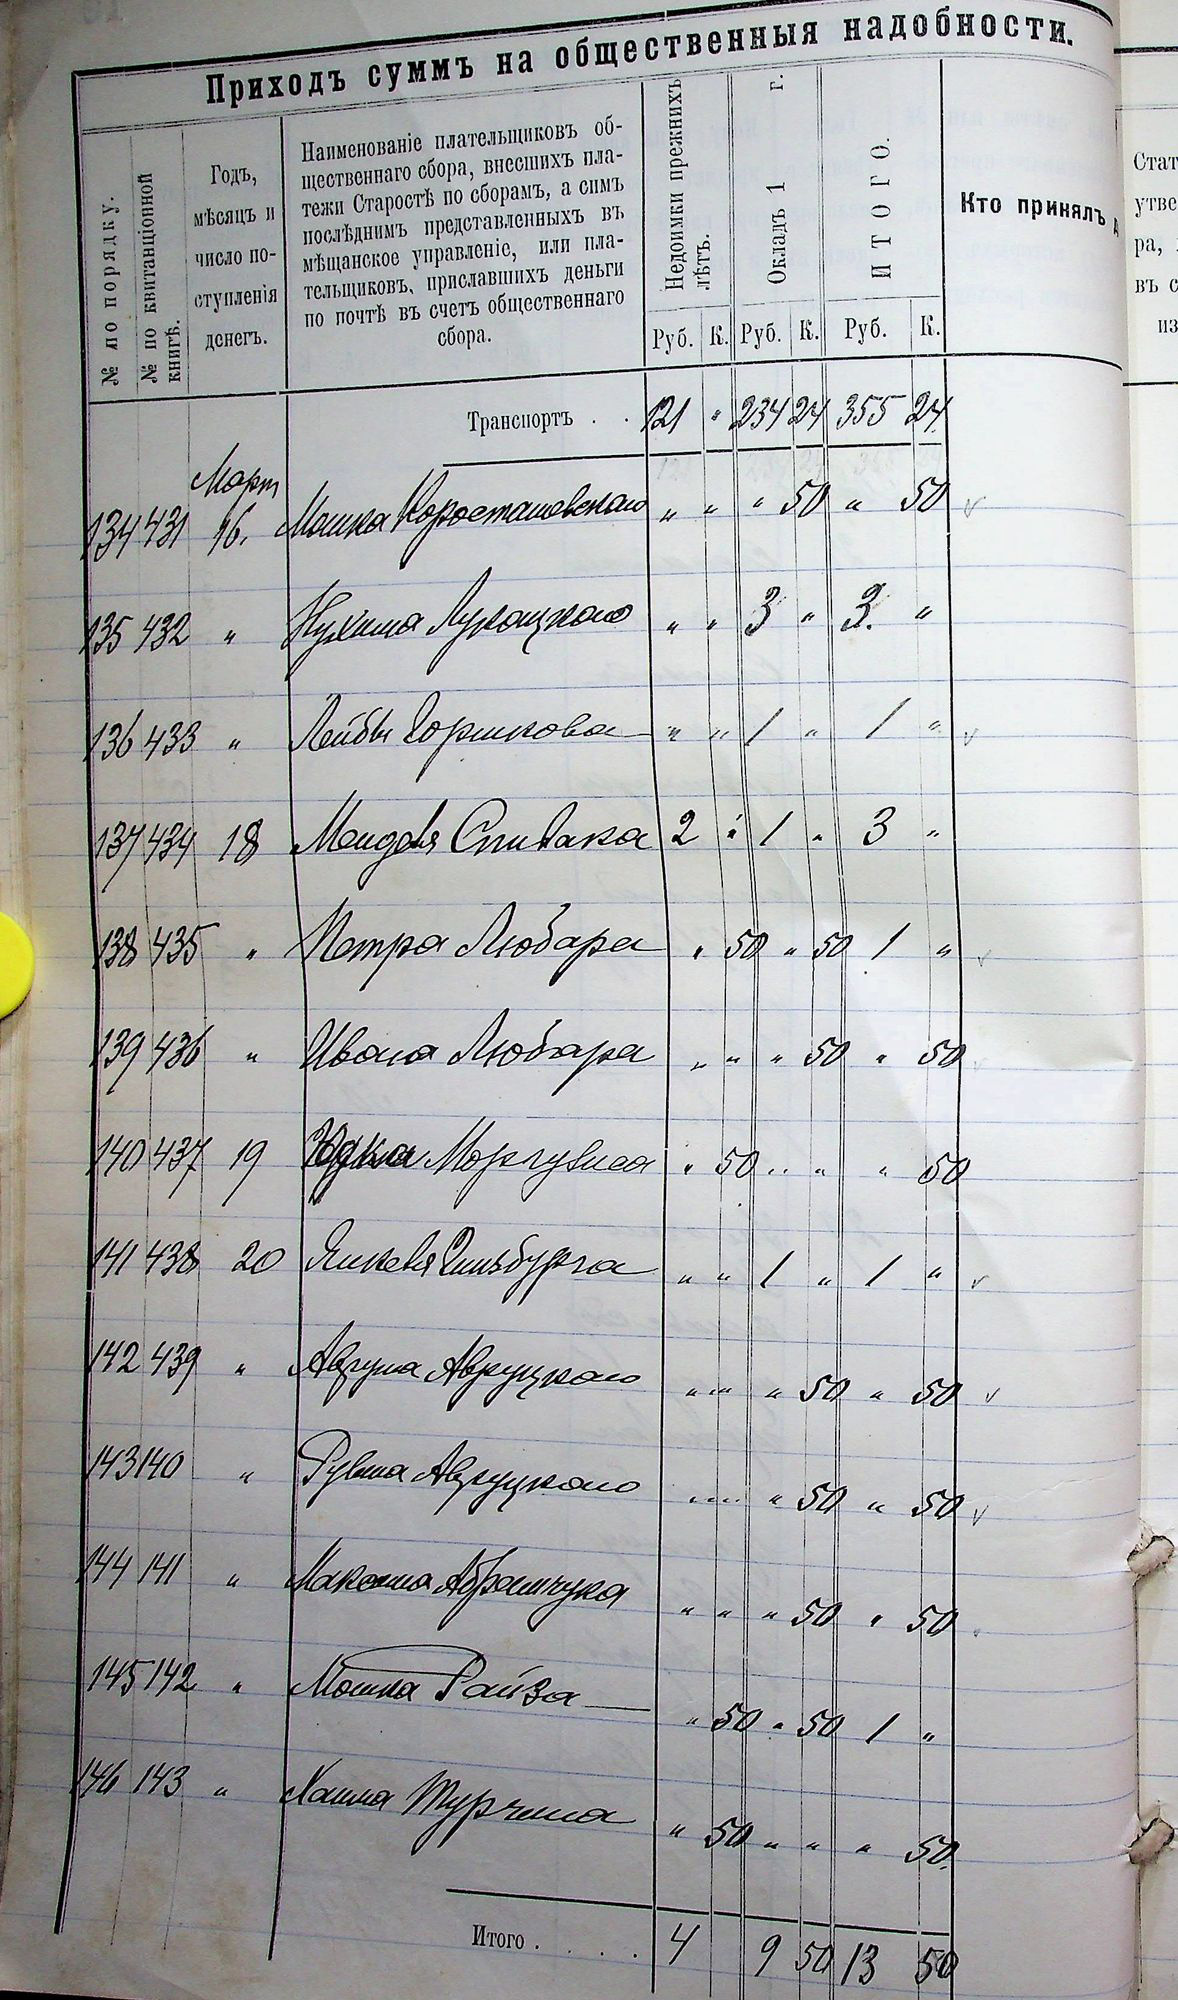 Приходъ суммъ на общественныя надобности.
№ по порядку.
№ по квитанціонной книгѣ.
Годъ,
мѣсяцъ и
число по-
ступленія
денегъ.
Наименованіе плательщиковъ об-
щественнаго сбора, внесшихъ пла-
тежи Старостѣ по сборамъ, а симъ
послѣднимъ представленныхъ въ
мѣщанское управленіе, или пла-
тельщиковъ, приславшихъ деньги
по почтѣ въ счетъ общественнаго
сбора.
Недоимки прежнихъ лѣтъ.
Окладъ 1 г.
ИТОГО.
Кто принялъ
Руб. К. Руб. К. Руб. К.
Стат
утве
ра,
въ с
из
Транспортъ . . 121 " 234 24 355 24
Март
134 431 16. Мошка Коросташевскаго " " " 50 " 50
135 432 " Нухима Лукацкаго " " 3 " 3. "
136 433 " Лейбы Горшкова " " 1 " 1 "
137 434 18 Менделя Спивака 2 " 1 " 3 "
138 435 " Петра Любара " 50 " 50 1 "
139 436 " Ивана Любара " " " 50 " 50
140 437 19 Юдка Моргулиса " 50 " " " 50
141 438 20 Янкеля Гинзбурга " " 1 " 1 "
142 439 " Аврума Авруцкаго " " " 50 " 50
143 140 " Рувина Авруцкаго " " " 50 " 50
144 141 " Максима Абрамчука " " " 50 " 50
145 142 " Мошка Райза " 50 " 50 1 "
146 143 " Хаима Турчина " 50 " " " 50.
Итого . . . . 4 9 50 13 50